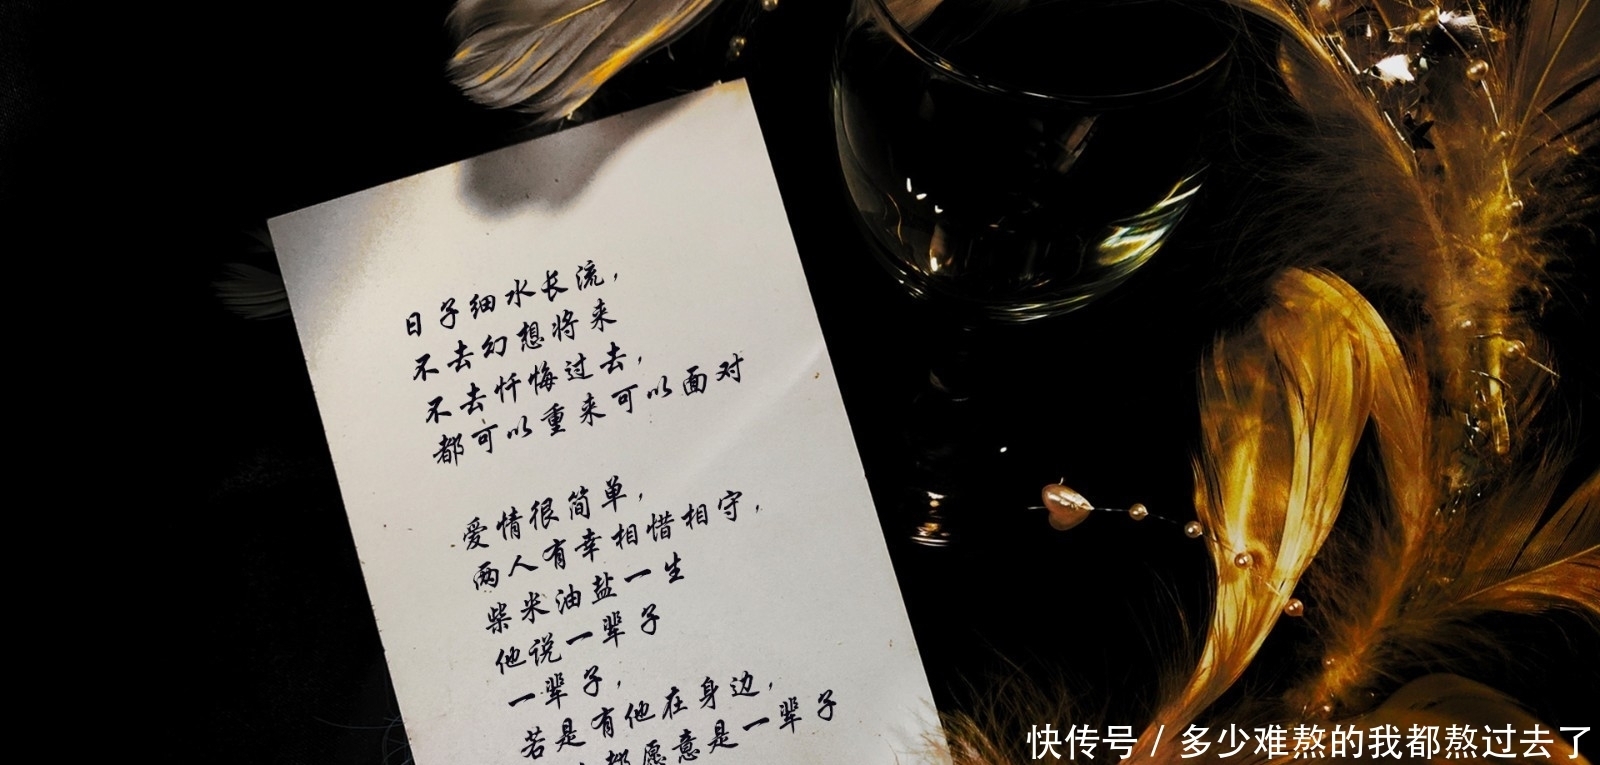 日子细水长流，
不去幻想将来
不去忏悔过去，
都可以重来可以面对
爱情很简单，
两人有幸相惜相守，
柴米油盐一生
他说一辈子
一辈子，
若是有他在身边，
都愿意是一辈子
快传号 / 多少难熬的我都熬过去了